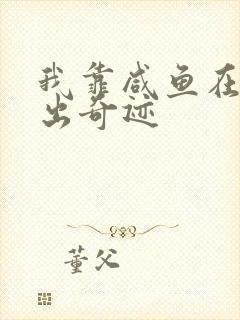 我靠咸鱼在
出奇迹
董父